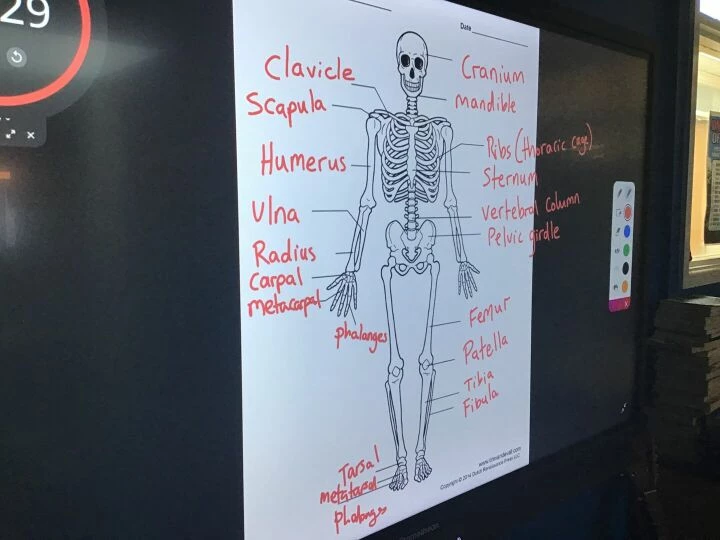 29
Date
Clavicle
Scapula
Humerus
Ulna
Radius
Carpal
metacarpal
phalanges
Cranium
mandible
Ribs (thoraric cage)
Sternum
vertebral Column
Pelvic girdle
Femur
Patella
Tibia
Fibula
Tarsal
metatarsal
phalanges
www.timvandevall.com
Copyright © 2014 Dutch Renaissance Press LLC